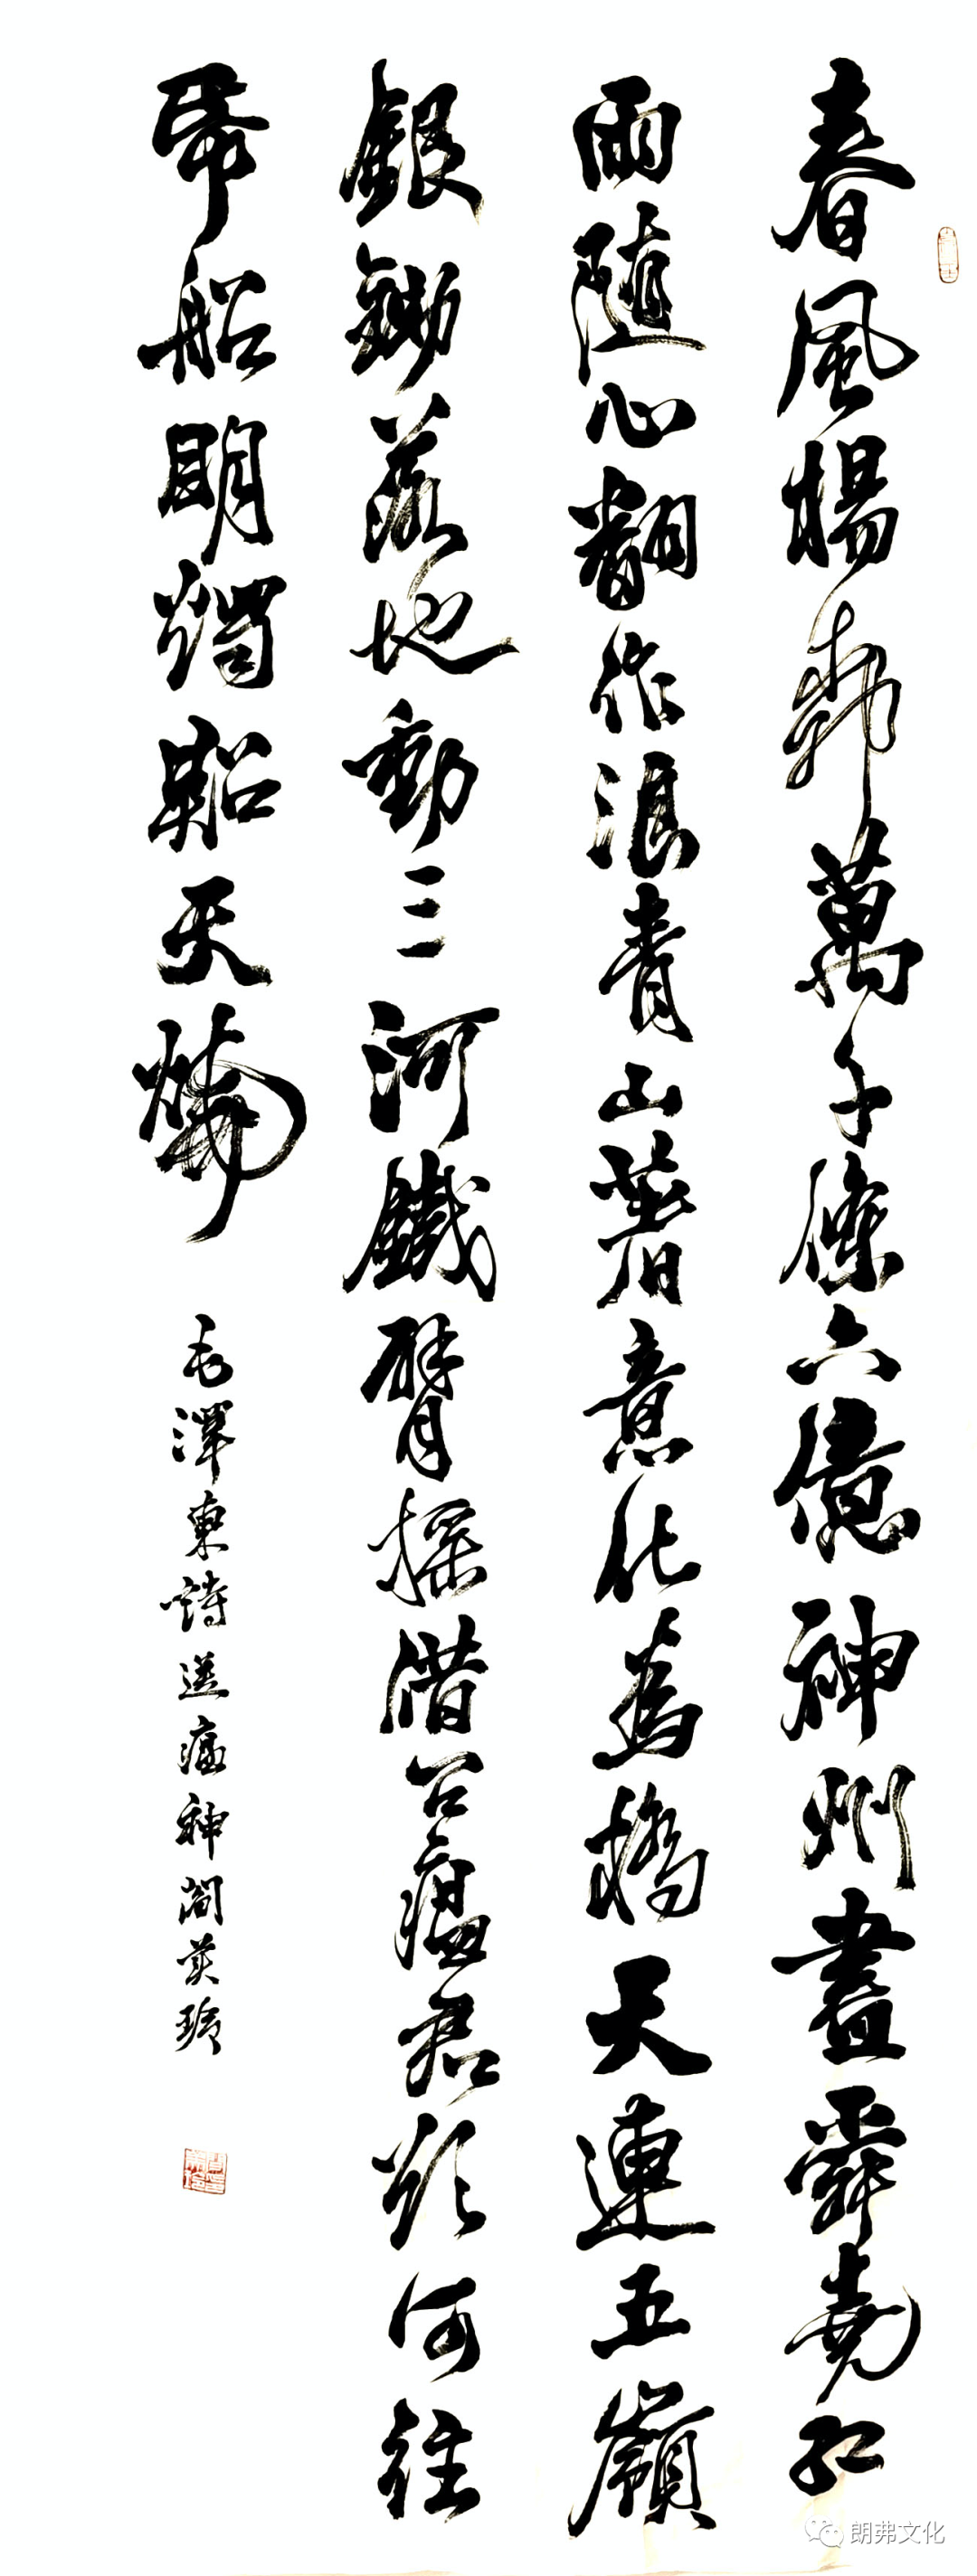 春風楊柳萬千條六億神州盡舜堯紅
雨隨心翻作浪青山著意化為橋天連五嶺
銀鋤落地動三河鐵臂搖借问瘟君欲何往
帋船明燭照天燒
毛澤東詩送瘟神
朗弗文化